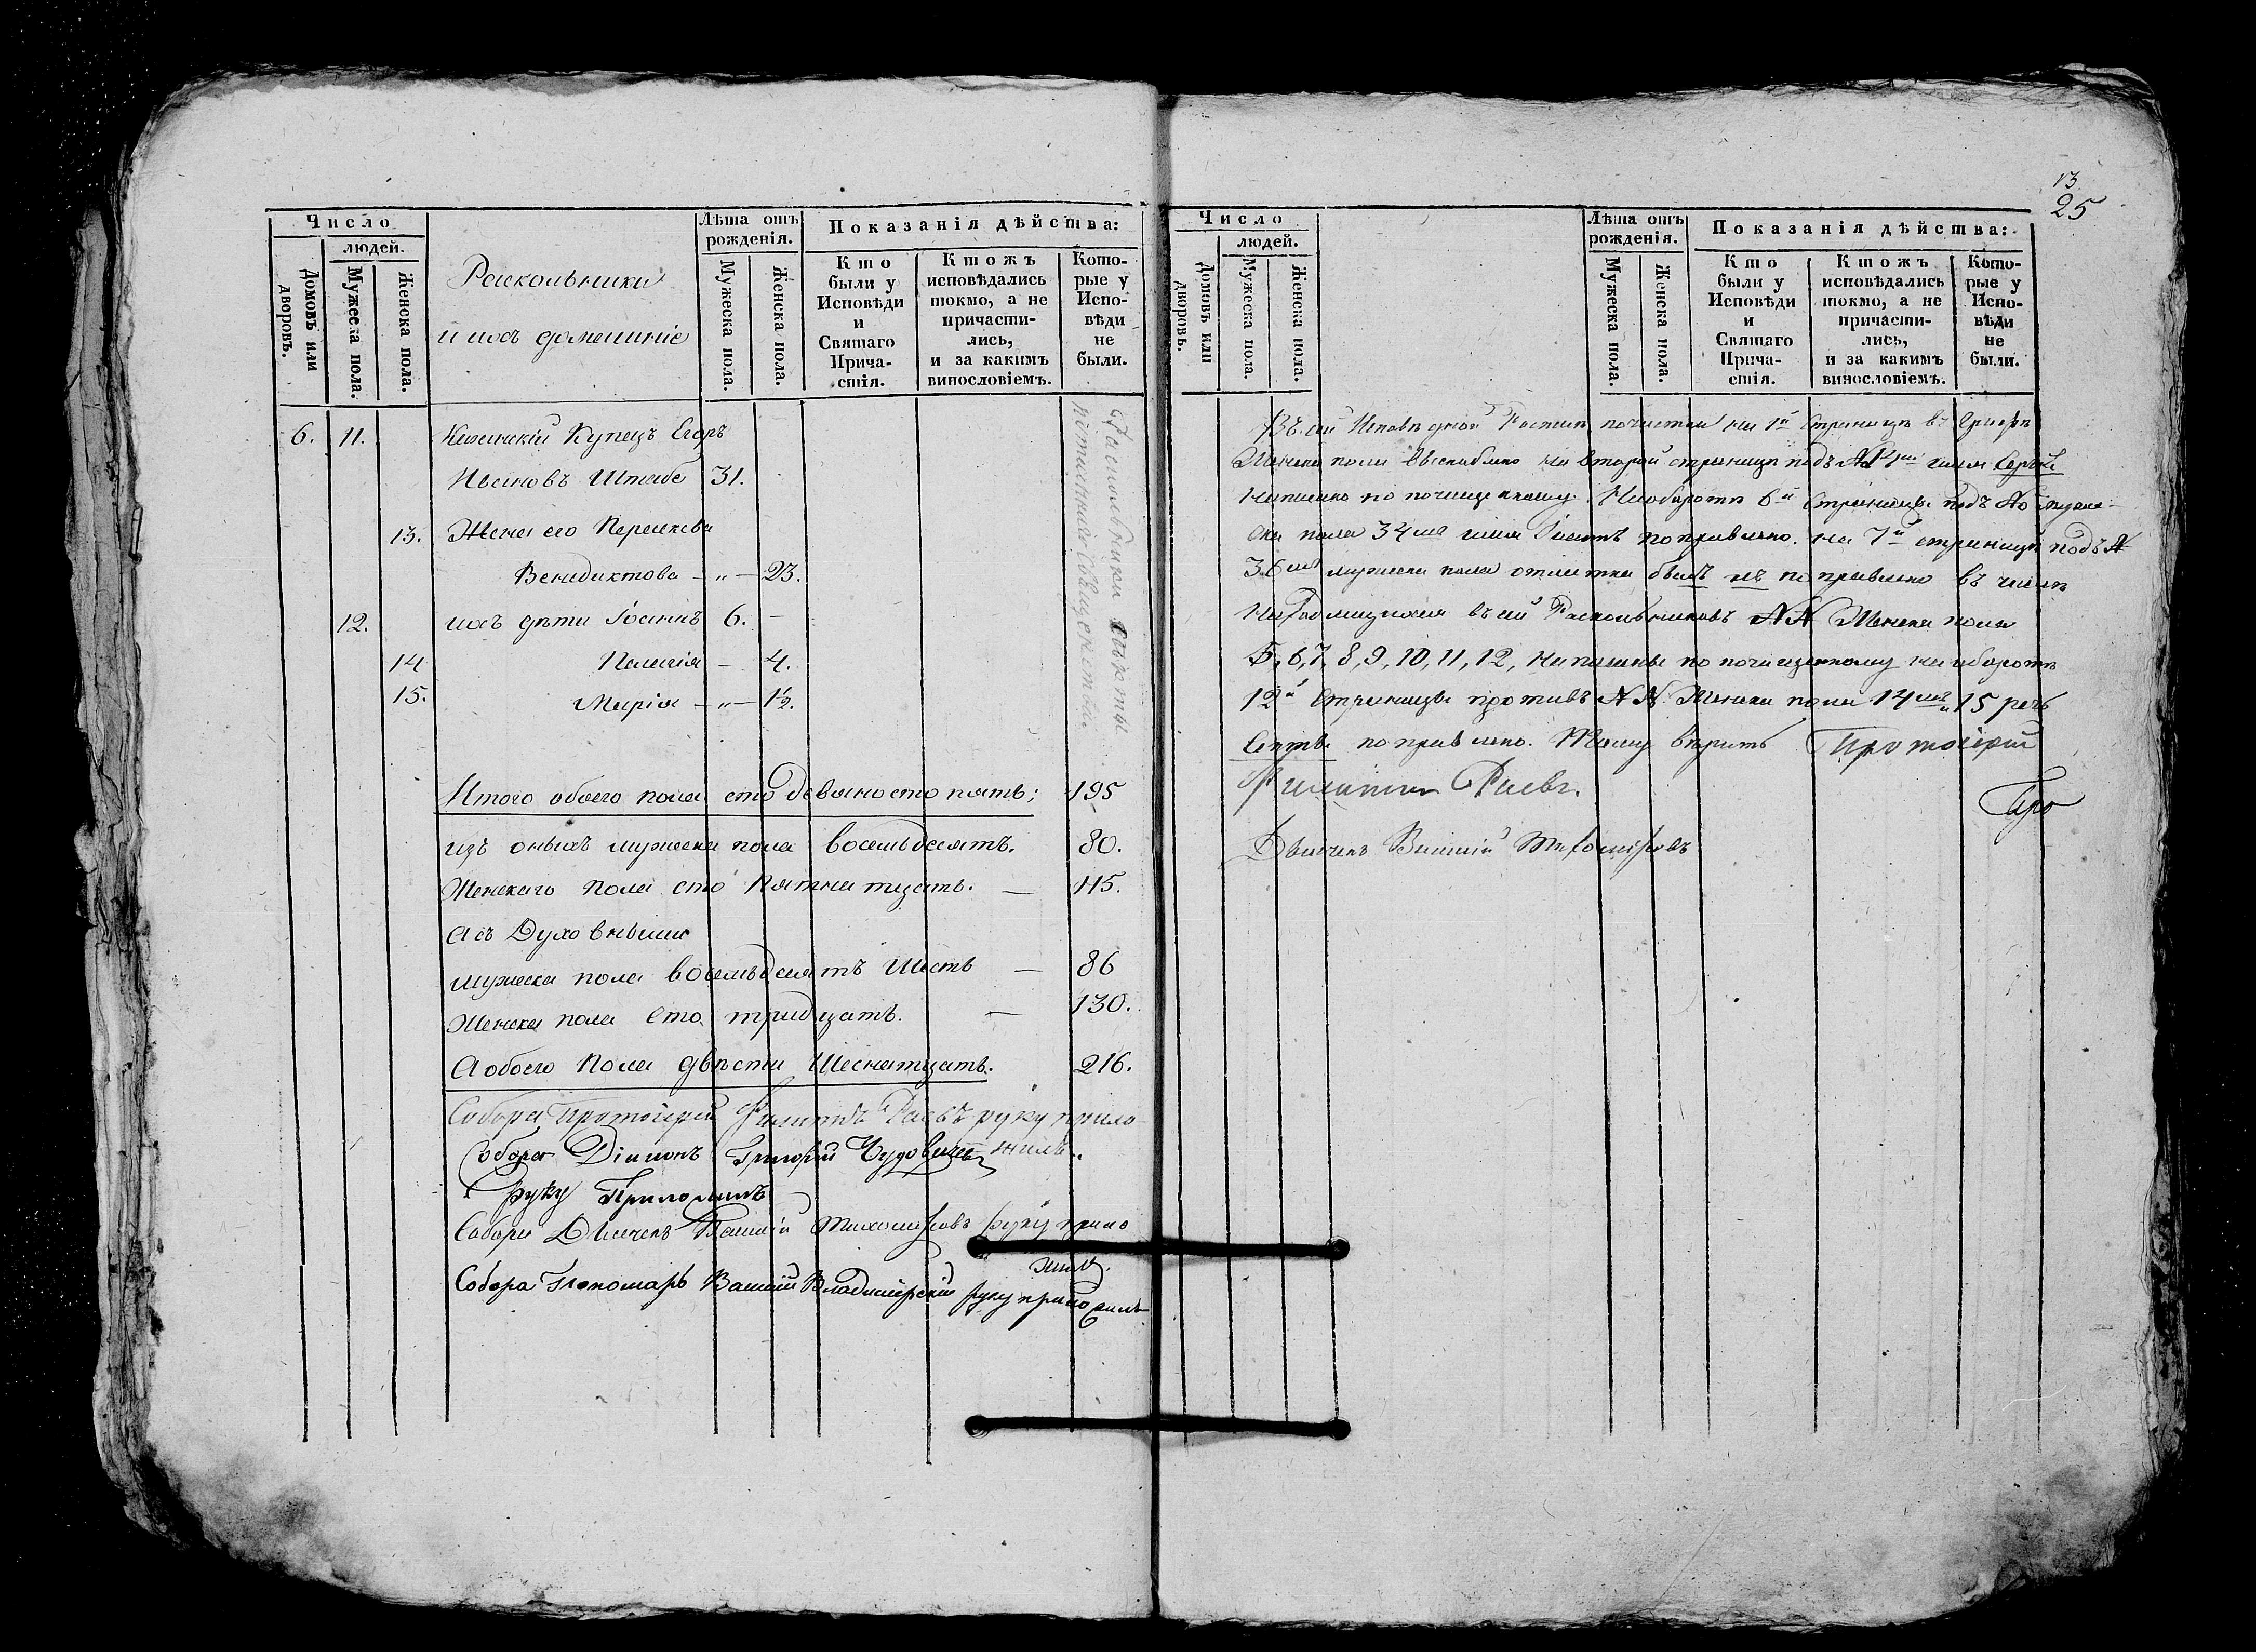 Число
людей.
Домовъ или дворовъ.
Мужеска пола.
Женска пола.
Раскольники
и ихъ домашніе
Лѣта отъ рожденія.
Мужеска пола.
Женска пола.
Показанія дѣйства:
Кто были у Исповѣди и Святаго Причастія.
Ктожъ исповѣдались токмо, а не причастились, и за какимъ винословіемъ.
Которые у Исповѣди не были.
6. 11. Купецъ Егоръ
Ивановъ 31.
13. Жена его
Венидиктова - „ - 23.
12. ихъ дѣти Іоаннъ 6. -
14 Пелагія - 4.
15. Марія - „ - 1½.
Раскольники секты
Итого обоего пола сто девяносто пять; 195
изъ оныхъ мужеска пола восемьдесятъ. 80.
Женскаго пола сто пятнатцать. — 115.
А съ Духовными
мужеска пола восемьдесятъ шесть — 86
Женска пола сто тридцать. — 130.
А обоего пола двѣсти шеснатцать. 216.
Собора Протоіерей Филиппъ Раевъ руку прило-
жилъ.
Собора Діаконъ Григорій
руку Приложилъ
Собора Дьячекъ Василій Тихомировъ руку прило
жилъ.
Собора Пономарь Василій Владимірскій руку приложилъ
13.
25
Число
людей.
Домовъ или дворовъ.
Мужеска пола.
Женска пола.
Лѣта отъ рожденія.
Мужеска пола.
Женска пола.
Показанія дѣйства:
Кто были у Исповѣди и Святаго Причастія.
Ктожъ исповѣдались токмо, а не причастились, и за какимъ винословіемъ.
Которые у Исповѣди не были.
Въ сей Исповѣдной Росписи на 1й страницѣ въ
Женска пола выскоблено на второй страницѣ подъ имя Сергѣй
написано по почищенному. На оборотѣ 6й страницы подъ № муже-
ска пола 34мъ имя поправлено. на 7й страницѣ подъ №
36мъ мужеска пола отметка былъ поправлено въ числѣ
въ сей Раскольниковъ NN Женска пола
5, 6, 7, 8, 9, 10, 11, 12, написаны по почищенному на оборотѣ
12й страницы противъ NN Женска пола 14мъ и 15 речь
секты поправлено. Тому вѣрить Протоіерей
Филиппъ Раевъ.
Про
Дьячекъ Василій Тихомировъ